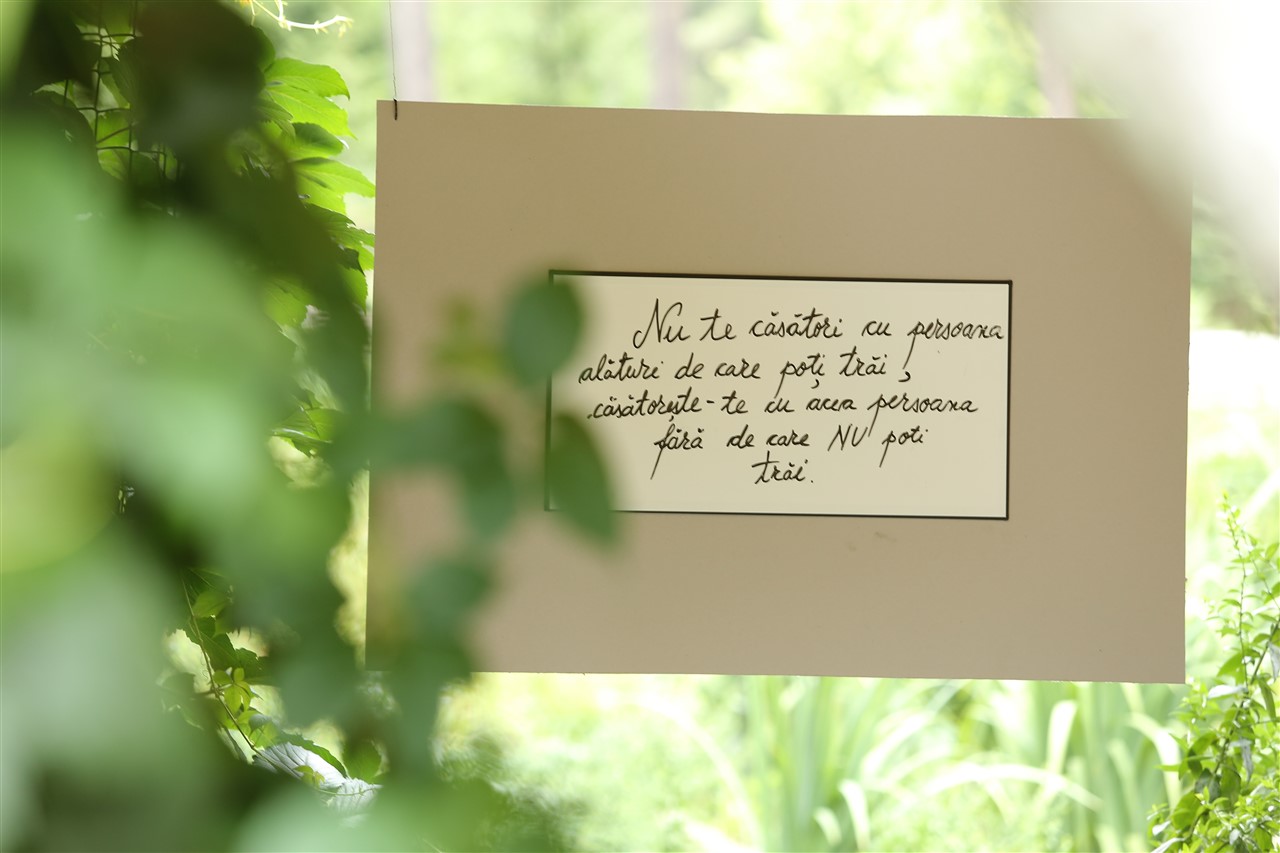 Nu te căsători cu persoana
alături de care poți trăi,
căsătorește-te cu acea persoana
fără de care NU poti
trăi.